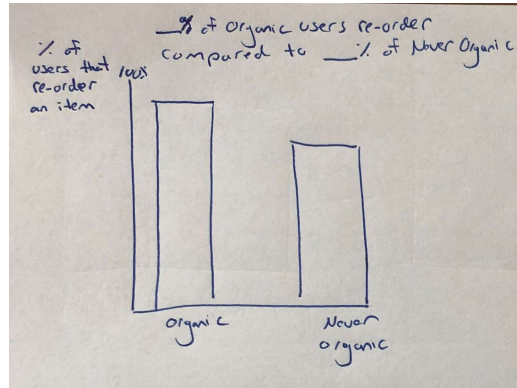 __% of organic users re-order
compared to __% of Never Organic
% of
users that
re-order
an item
100%
organic
Never
organic